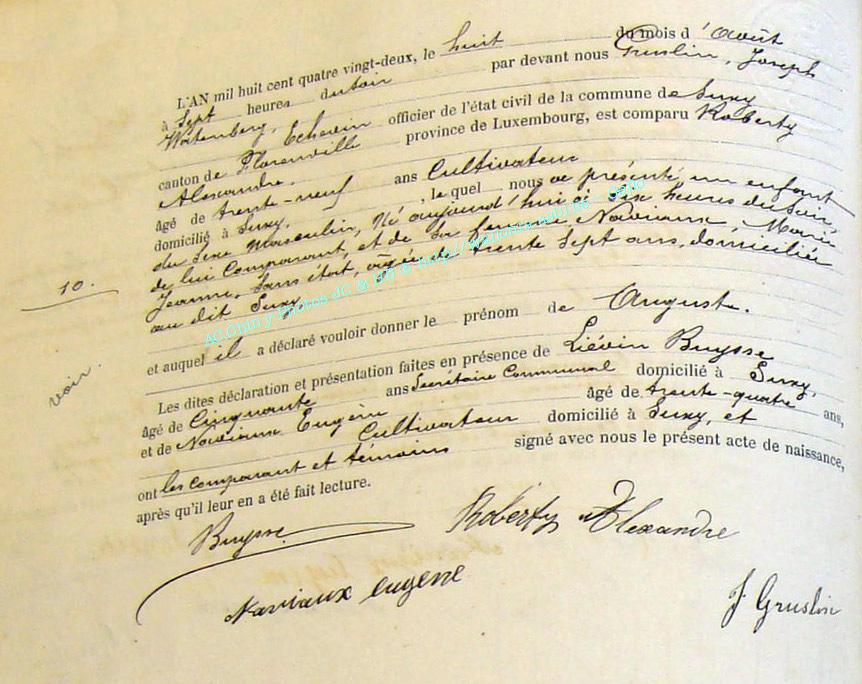 L'AN mil huit cent quatre vingt-deux, le huit du mois d'Août
à Sept heures du Soir par devant nous Gruslin, Joseph
Echevin officier de l'état civil de la commune de Suxy
canton de Florenville province de Luxembourg, est comparu Roberty
Alexandre.
âgé de trente-neuf ans Cultivateur
domicilié à Suxy. , le quel nous a présenté un enfant
du Sexe Masculin, Né aujourd'hui à Six heures du Soir,
de lui Comparant, et de Sa femme Naviaux, Marie
Jeanne, Sans état, agée de trente Sept ans, domiciliée
au dit Suxy
10.
et auquel il a déclaré vouloir donner le prénom de Auguste.
voir.
Les dites déclaration et présentation faites en présence de Liévin Buysse
âgé de Cinquante ans Secrétaire Communal domicilié à Suxy,
et de Naviaux Eugène âgé de trente-quatre ans,
Cultivateur domicilié à Suxy, et
ont les comparant et témoins signé avec nous le présent acte de naissance,
après qu'il leur en a été fait lecture.
Buysse
Roberty Alexandre
Naviaux eugene
J Gruslin